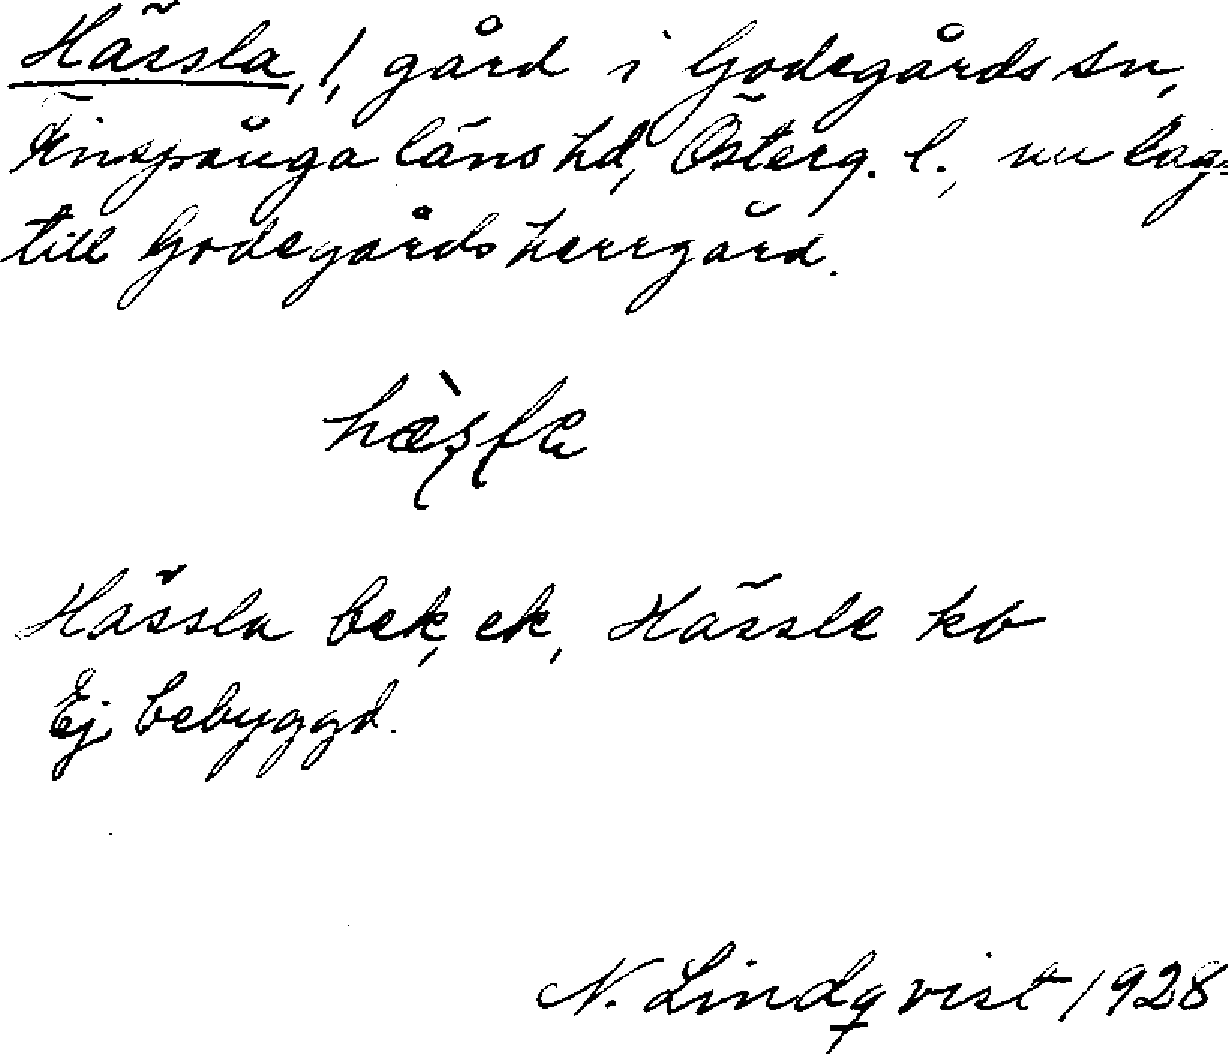 Hässla, 1, gård i Godegårds sn,
Finspånga läns hd, Österg. l., nu lag-
till Godegårds herrgård.
Hässla bek, ek, Hässle kb
Ej bebyggd.
N. Lindqvist 1928